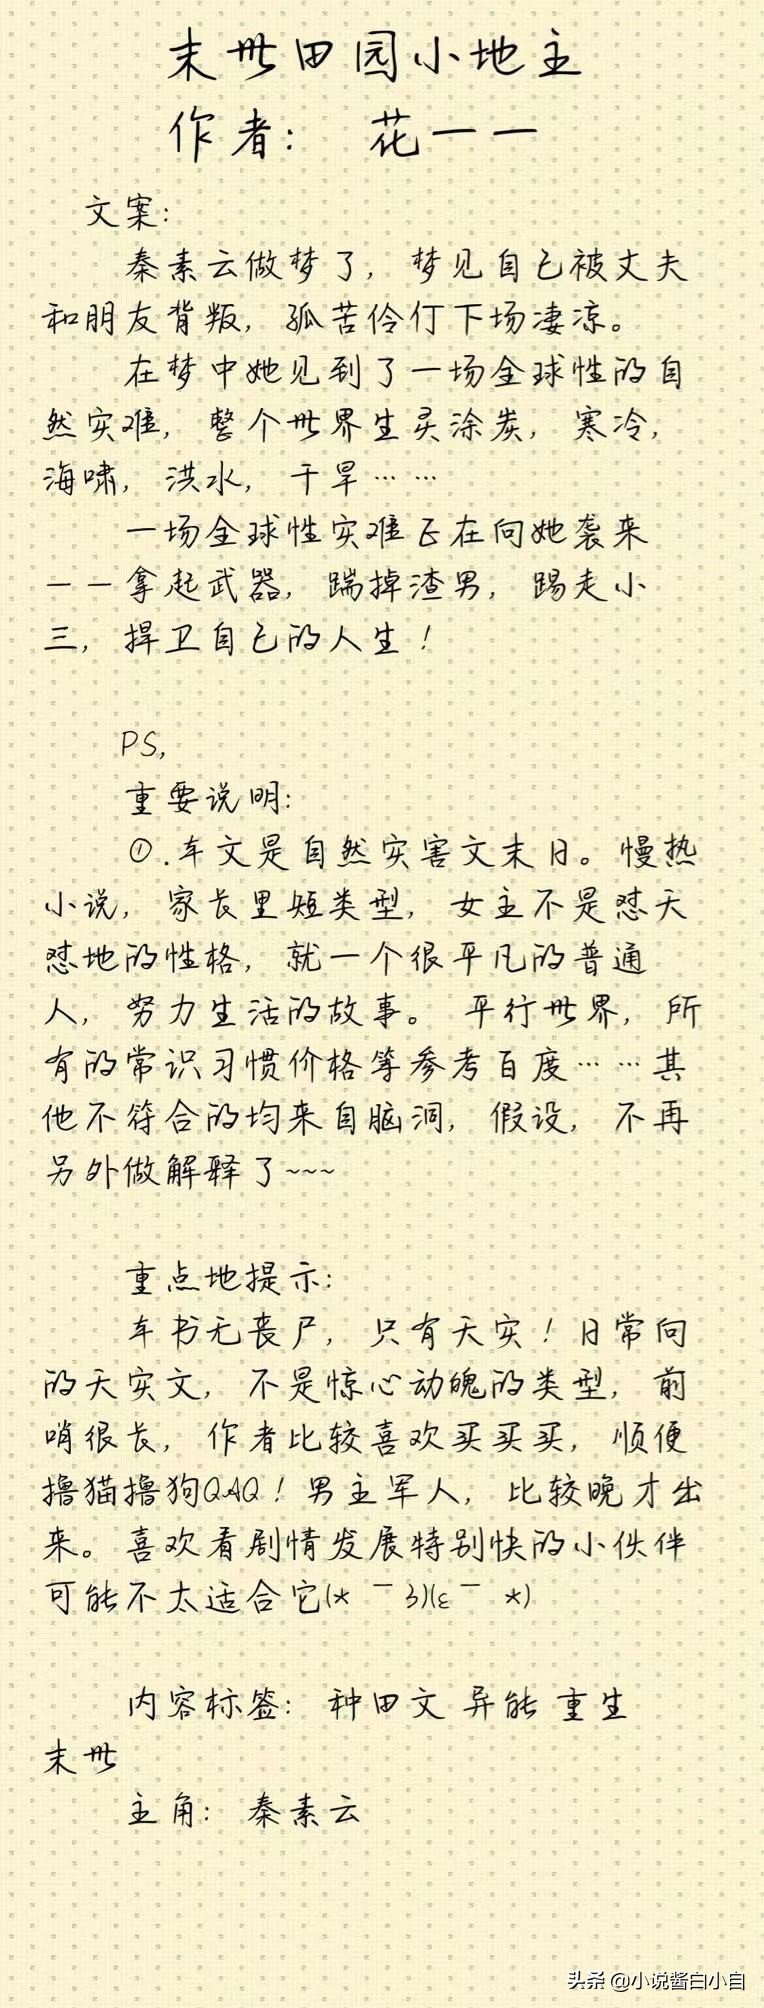 末世田园小地主
作者： 花一一
文案：
秦素云做梦了，梦见自己被丈夫
和朋友背叛，孤苦伶仃下场凄凉。
在梦中她见到了一场全球性的自
然灾难，整个世界生灵涂炭，寒冷，
海啸，洪水，干旱……
一场全球性灾难正在向她袭来
——拿起武器，踹掉渣男，踢走小
三，捍卫自己的人生！
PS，
重要说明：
①.本文是自然灾害文末日。慢热
小说，家长里短类型，女主不是怼天
怼地的性格，就一个很平凡的普通
人，努力生活的故事。 平行世界，所
有的常识习惯价格等参考百度……其
他不符合的均来自脑洞，假设，不再
另外做解释了~~~
重点地提示：
本书无丧尸，只有天灾！日常向
的天灾文，不是惊心动魄的类型，前
哨很长，作者比较喜欢买买买，顺便
撸猫撸狗QAQ！男主军人，比较晚才出
来。喜欢看剧情发展特别快的小伙伴
可能不太适合它(*￣3)(ε￣*)
内容标签： 种田文 异能 重生
末世
主角： 秦素云
头条 @小说酱白小白